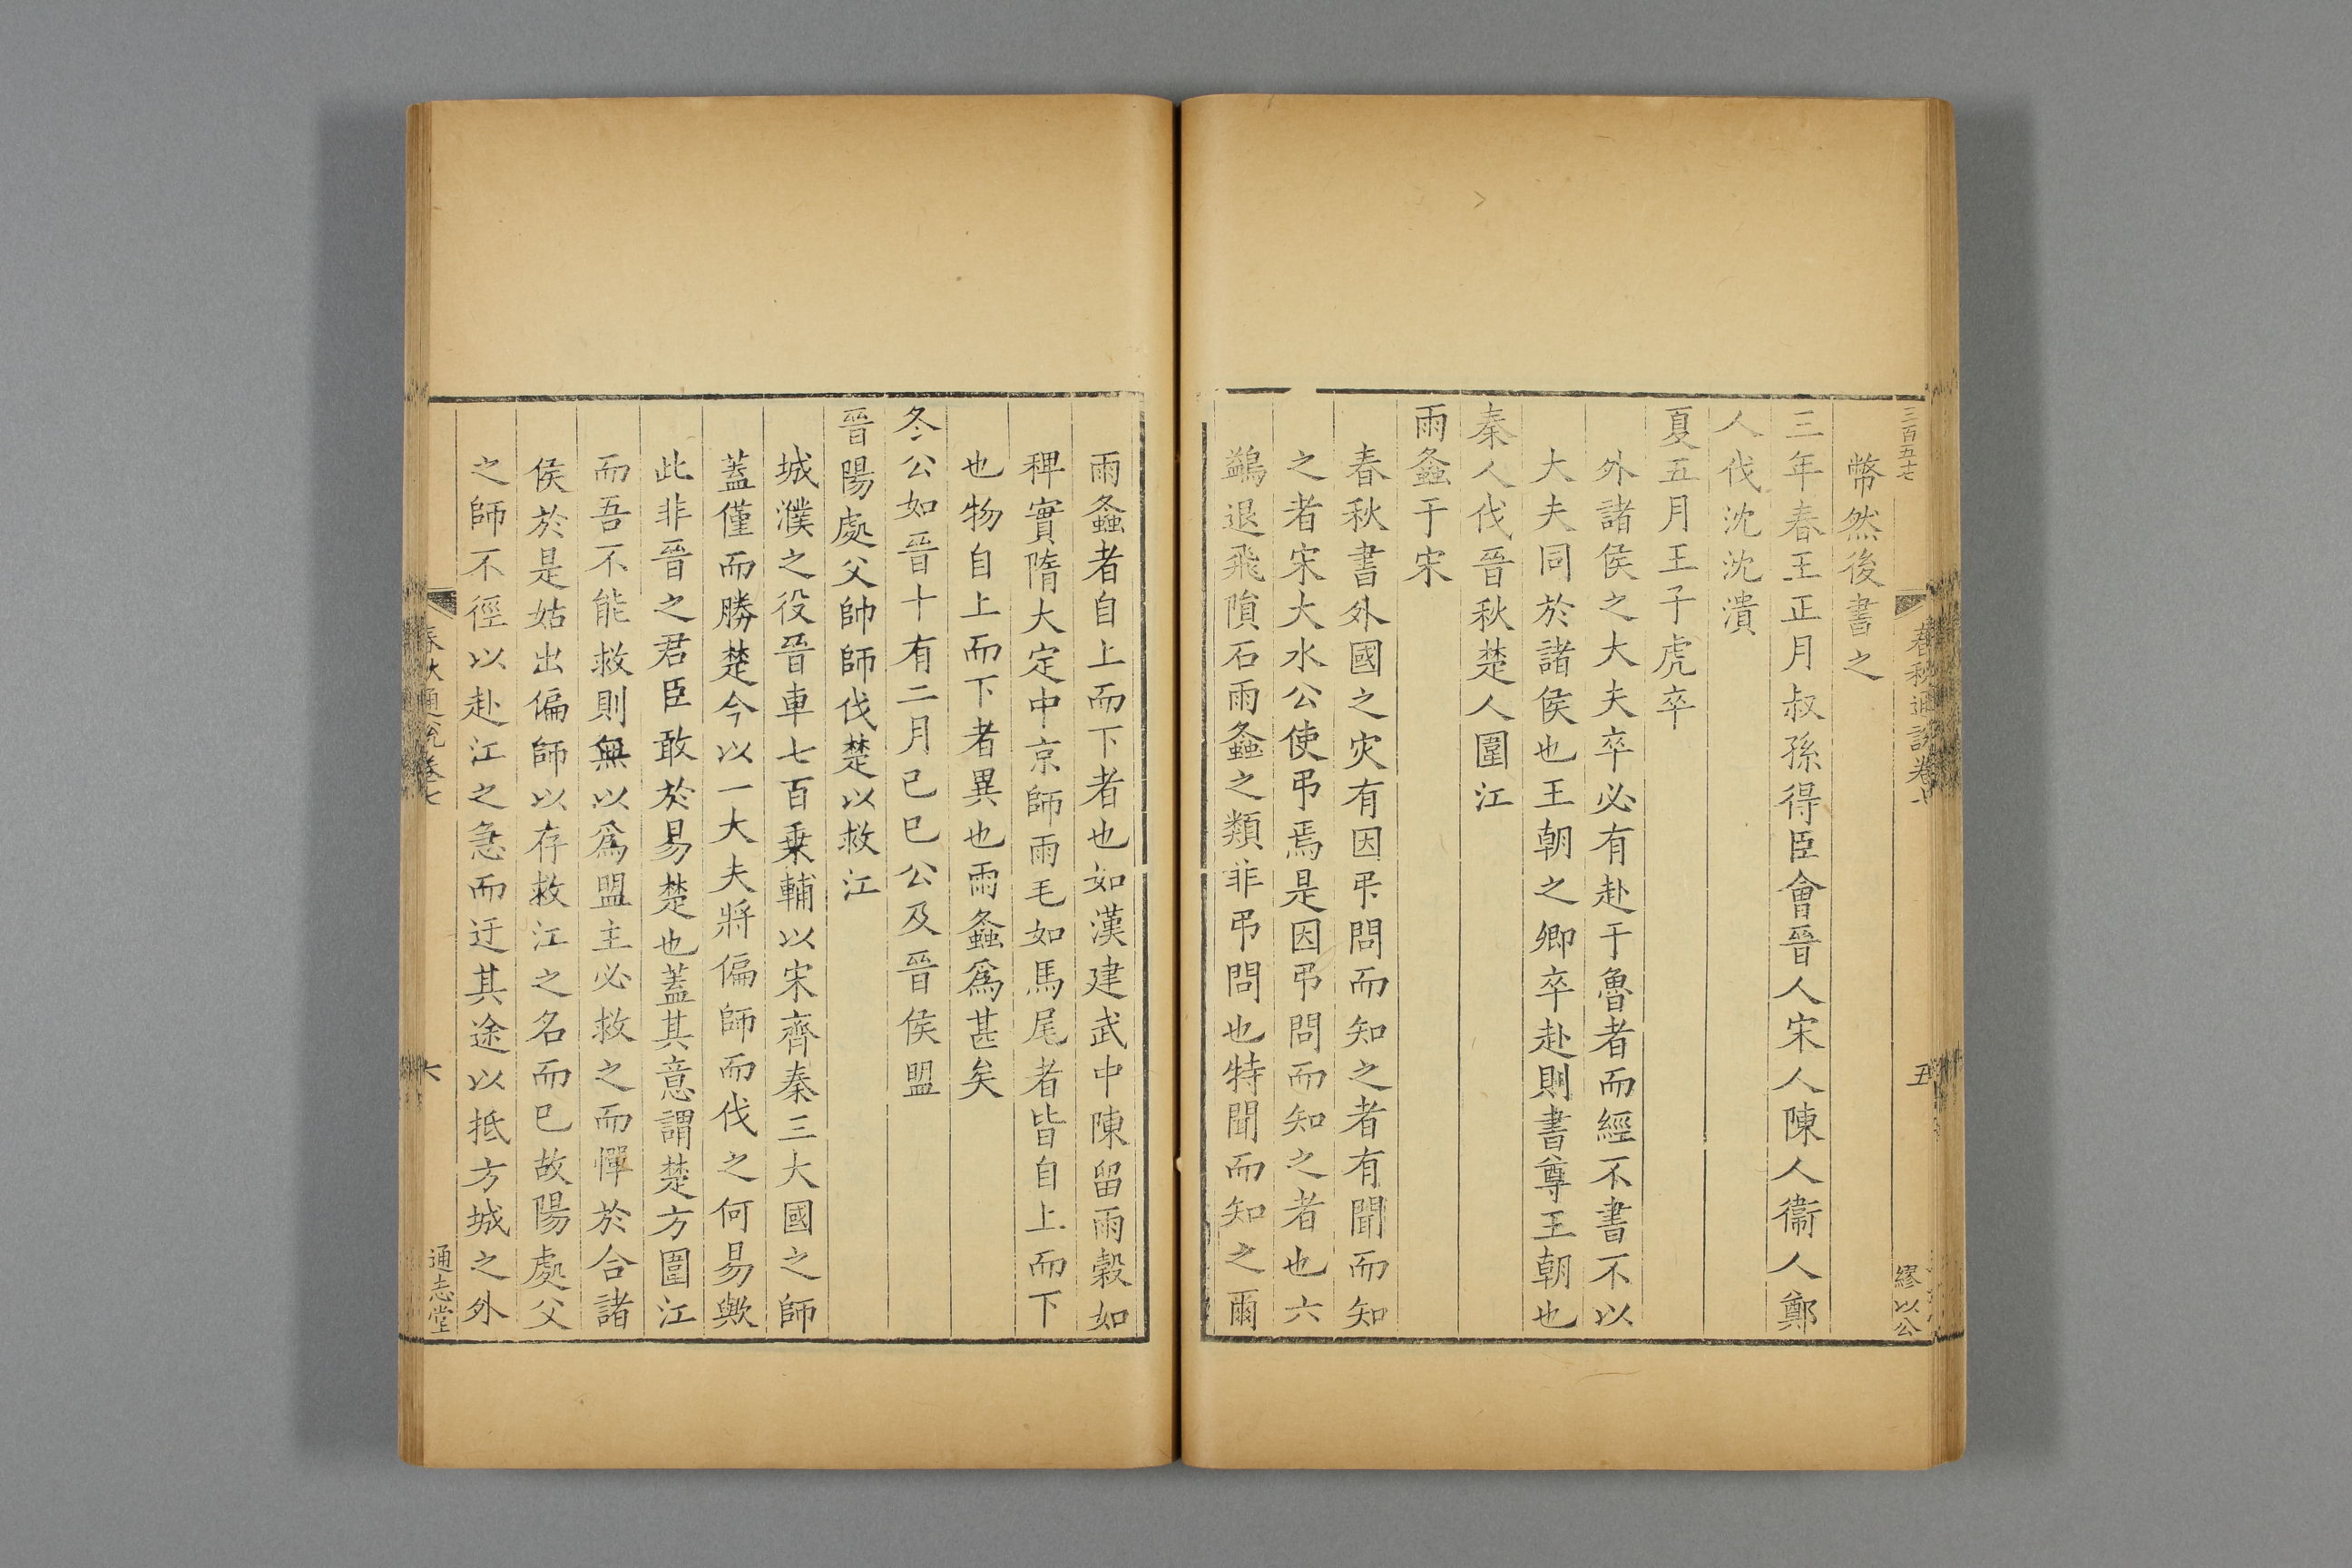 三百五十七
春秋通說卷七
五
繆以公
幣然後書之
三年春王正月叔孫得臣會晉人宋人陳人衞人鄭
人伐沈沈潰
夏五月王子虎卒
外諸侯之大夫卒必有赴于魯者而經不書不以
大夫同於諸侯也王朝之卿卒赴則書尊王朝也
秦人伐晉秋楚人圍江
雨螽于宋
春秋書外國之灾有因弔問而知之者有聞而知
之者宋大水公使弔焉是因弔問而知之者也六
鷁退飛隕石雨螽之類非弔問也特聞而知之爾
雨螽者自上而下者也如漢建武中陳留雨穀如
稗實隋大定中京師雨毛如馬尾者皆自上而下
也物自上而下者異也雨螽爲甚矣
冬公如晉十有二月己巳公及晉侯盟
晉陽處父帥師伐楚以救江
城濮之役晉車七百乗輔以宋齊秦三大國之師
蓋僅而勝楚今以一大夫將偏師而伐之何易歟
此非晉之君臣敢於易楚也蓋其意謂楚方圍江
而吾不能救則無以爲盟主必救之而憚於合諸
侯於是姑出偏師以存救江之名而已故陽處父
之師不徑以赴江之急而迂其途以抵方城之外
春秋通說卷七
六
通志堂